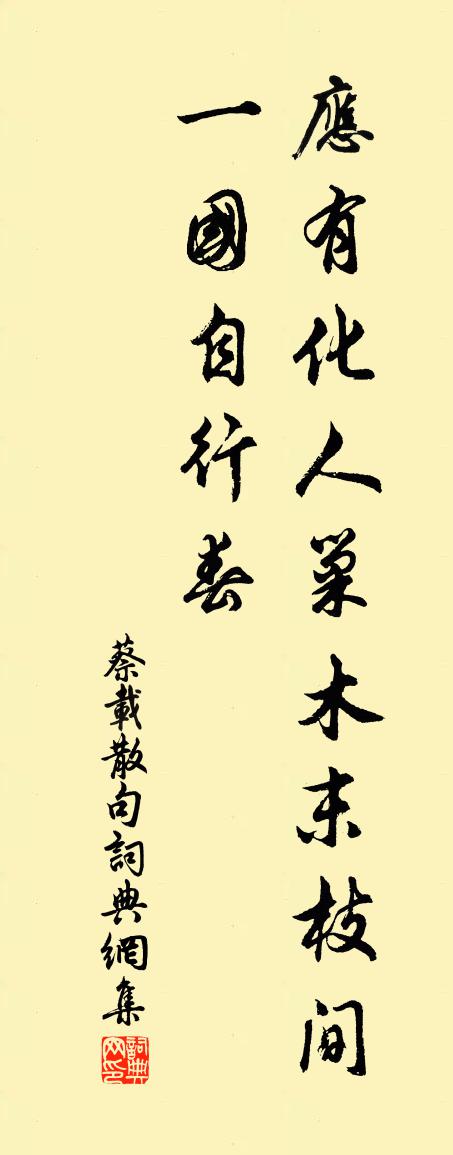 應有化人巢木末枝間
一國自行春
蔡載散句詞典網集
詞典网印